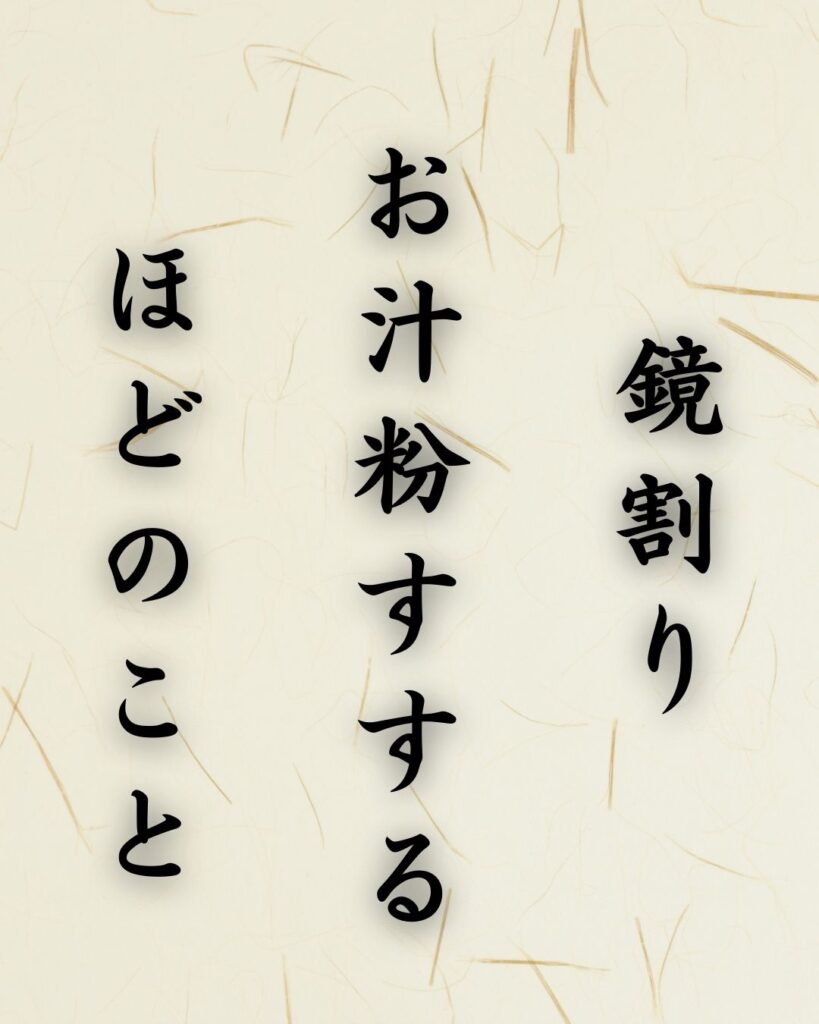 鏡割り
お汁粉すする
ほどのこと